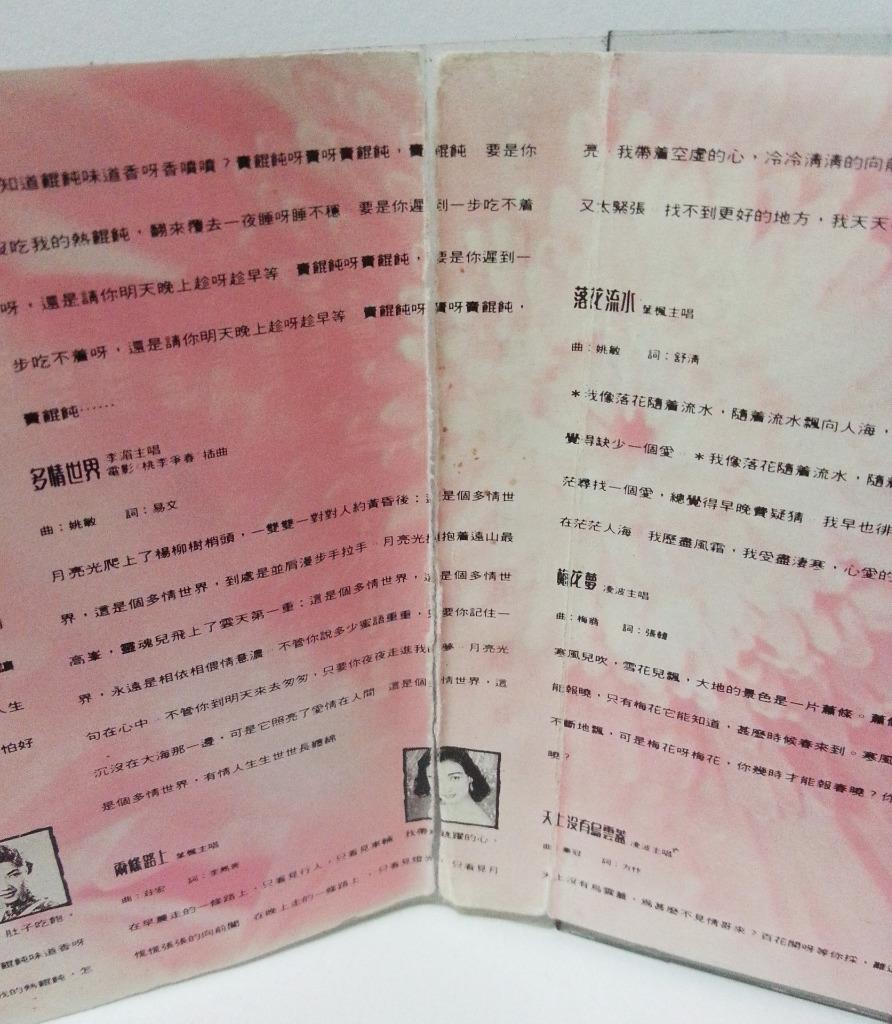 知道餛飩味道香呀香噴噴?賣餛飩呀賣呀賣餛飩,賣餛飩 要是你
沒吃我的熱餛飩,翻來覆去一夜睡呀睡不穩 要是你遲到一步吃不着
呀,還是請你明天晚上趁呀趁早等 賣餛飩呀賣餛飩,要是你遲到一
步吃不着呀,還是請你明天晚上趁呀趁早等 賣餛飩呀賣呀賣餛飩,
賣餛飩……
多情世界 李湄主唱
電影 桃李爭春 插曲
曲:姚敏 詞:易文
月亮光爬上了楊柳樹梢頭,一雙雙一對對人約黃昏後:這是個多情世
界,這是個多情世界,到處是並肩漫步手拉手 月亮光擁抱着遠山最
高峯,靈魂兒飛上了雲天第一重:這是個多情世界,這是個多情世
界,永遠是相依相偎情意濃 不管你說多少蜜語重重,只要你記住一
句在心中 不管你到明天來去匆匆,只要你夜夜走進我的夢 月亮光
沉沒在大海那一邊,可是它照亮了愛情在人間 這是個多情世界,這
是個多情世界,有情人生生世世長纏綿
兩條路上 葉楓主唱
曲:莊宏 詞:
我帶着跳躍的心,
在早晨走的一條路上,只看見行人,只看見車輛
慌慌張張的向前闖 在晚上走的一條路上,只看見燈光,只看見月
人生
怕好
肚子吃飽,
餛飩味道香呀
我的熱餛飩,怎
亮 我帶着空虛的心,冷冷清清的向前
又太緊張 找不到更好的地方,我天天
落花流水 葉楓主唱
曲:姚敏 詞:舒清
*我像落花隨着流水,隨着流水飄向人海,
覺得缺少一個愛 *我像落花隨着流水,隨着
茫尋找一個愛,總覺得早晚費疑猜 我早也徘
在茫茫人海 我歷盡風霜,我受盡淒寒,心愛的
梅花夢 凌波主唱
曲:梅翁 詞:張
寒風兒吹,雪花兒飄,大地的景色是一片蕭條。蕭條
能報曉,只有梅花它能知道,甚麼時候春來到。寒風
不斷地飄,可是梅花呀梅花,你幾時才能報春曉?你
曉?
天上沒有烏雲蓋 凌波主唱
曲: 冠 詞:方忭
天上沒有烏雲蓋,爲甚麼不見情哥來?百花開呀等你採,